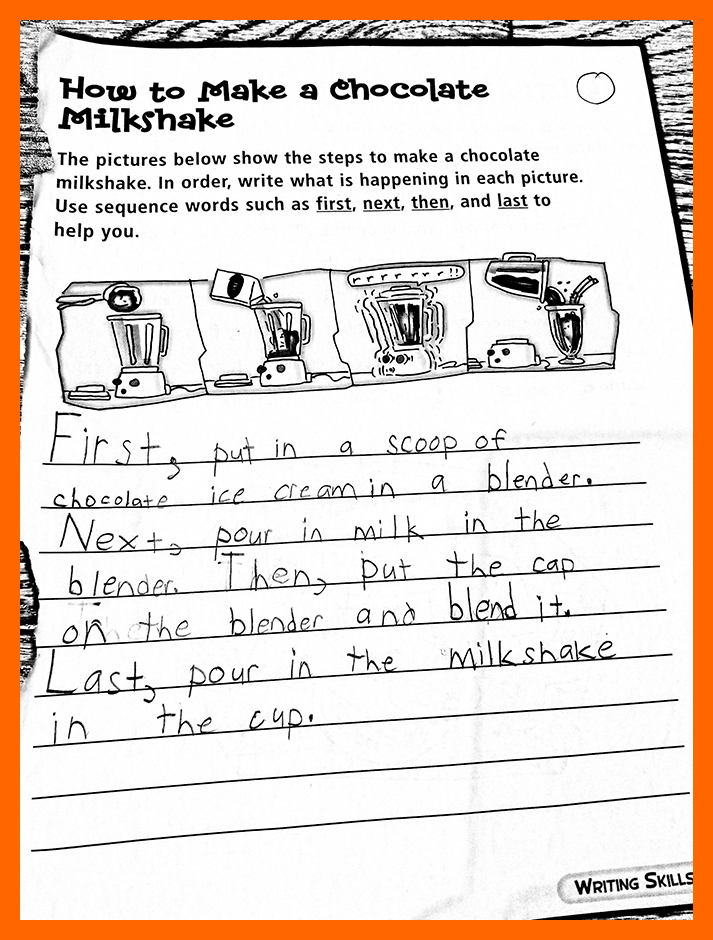 How to Make a Chocolate
Milkshake
The pictures below show the steps to make a chocolate
milkshake. In order, write what is happening in each picture.
Use sequence words such as first, next, then, and last to
help you.
r r r r r r r !!
First, put in a scoop of
chocolate ice cream in a blender.
Next, pour in milk in the
blender. Then, put the cap
on the blender and blend it.
Last, pour in the milkshake
in the cup.
WRITING SKILLS